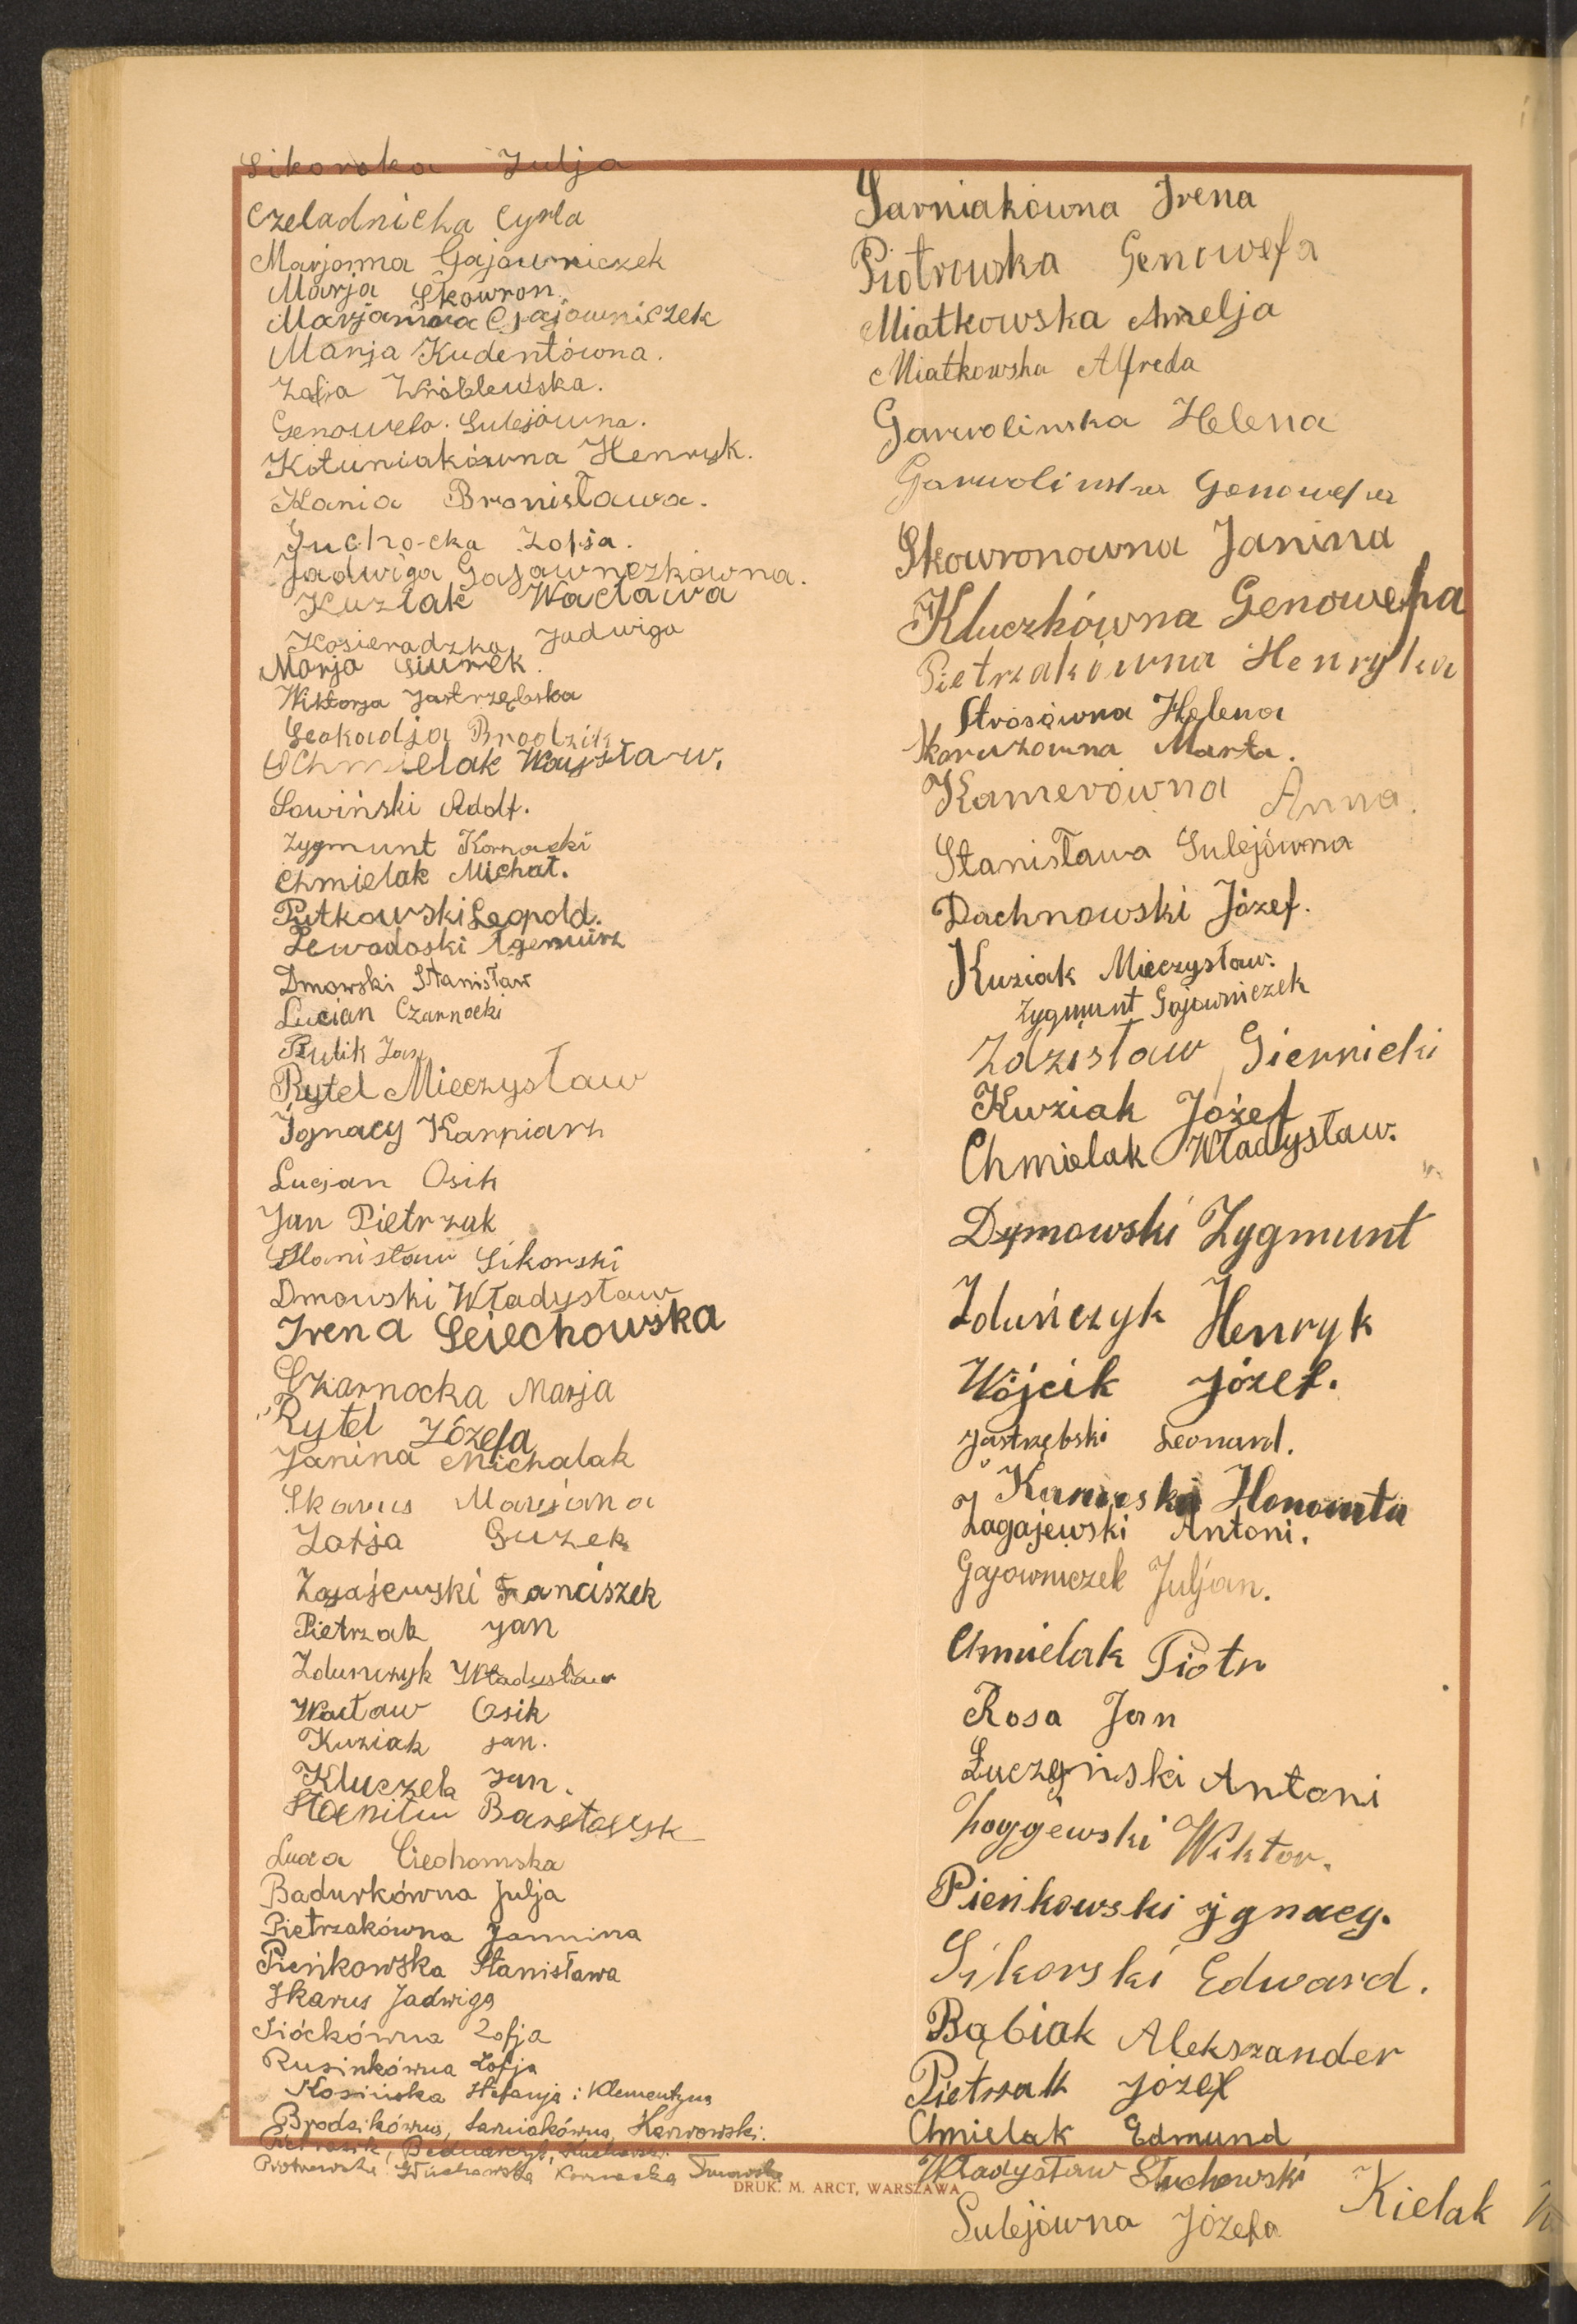 Sikorska Julja
Czeladnicka Cyrla
Marjanna Gajowniczek
Marja Skowron.
Marjanna Gajowniczek
Marja Kudentówna.
Zofja Wróblewska.
Genowefa. Sulejówna.
Kotuniakówna Henryk.
Kania Bronisława.
Suchocka Zofja.
Jadwiga Gajownczkówna.
Kuziak Wacława
Kosieradzka Jadwiga
Marja Siurek.
Wiktorja Jastrzębska
Leokadja Brodzik
Chmielak Wacysław.
Sawiński Adolf.
Zygmunt Kornacki
Chmielak Michał.
Putkowski Leopold.
Lewadoski
Dmowski Stanisław
Lucian Czarnocki
Rulik Jan
Rytel Mieczysław
Ignacy Karpiarz
Lucjan Osik
Jan Pietrzak
Stanisław Sikorski
Dmowski Władysław
Irena Sciechowska
Czarnocka Marja
Rytel Józefa
Janina Michalak
Skarus Marjana
Zofja Guzek
Zagajewski Franciszek
Pietrzak Jan
Zdunczyk Władysław
Wacław Osik
Kuziak Jan.
Kluczek Jan.
Ciechomska
Badurkówna Julja
Pietrzakówna Jannina
Pieńkowska Stanisława
Skarus Jadwiga
Sióckówna Zofja
Rusinkówna Zofja
Kosińska Stefanja i Klementyna
Brodzikówna, Sarniakówna, Karwowski.
Pietrasik, Bednarczyk,
Piotrowska Głuchowska Kornacka
Sarniakówna Irena
Piotrowska Genowefa
Miatkowska Amelja
Miatkowska Alfreda
Garwolinska Helena
Garwolinska Genowefa
Skowronowna Janina
Kluczkówna Genowefa
Pietrzakówna Henryka
Strosówna Helena
Karuzowna Marta.
Kamerówna Anna.
Stanisława Sulejówna
Dachnowski Józef.
Kuziak Mieczysław.
Zygmunt Gajowniczek
Zdzisław Siernicki
Kuziak Józef
Chmielak Władysław.
Dymowski Zygmunt
Zduńczyk Henryk
Wójcik Józef.
Jastrzębski Leonard.
Kanieska Honorata
Zagajewski Antoni.
Gajowniczek Juljan.
Chmielak Piotr
Rosa Jan
Łuczyński Antoni
Wiktor.
Pieńkowski Jgnacy.
Sikorski Edward.
Bąbiak Alekszander
Pietrzak Józef
Chmielak Edmund
Władysław Słuchowski
Sulejówna Józefa
Kielak
DRUK. M. ARCT, WARSZAWA